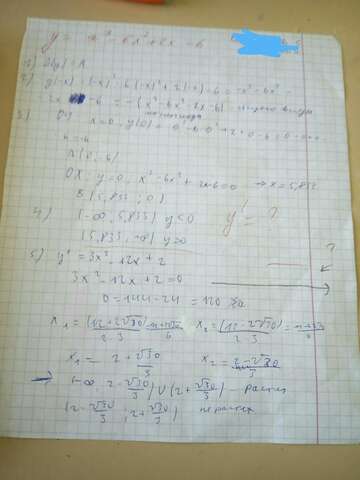 y = x³ - 6x² + 2x - 6
1) D(y) = R
2) y(-x) = (-x)³ - 6(-x)² + 2(-x) - 6 = -x³ - 6x² -
- 2x - 6 = -(x³ - 6x² - 2x - 6) общего вида
3) Oy x=0, y(0) = 0 - 6·0² + 2·0 - 6 =
= -6
A(0; -6)
OX: y=0, x³ - 6x² + 2x - 6 = 0 → x = 5,833
B (5,833 ; 0)
4) (-∞, 5,833) y<0
(5,833, +∞) y>0
y' = ?
?
5) y' = 3x² - 12x + 2
3x² - 12x + 2 = 0
D = 144 - 24 = 120
x₁ = (12+2√30)/2·3 = 12+2√30/6 x₂ = (12-2√30)/2·3 = 12-2√30/6
x₁ = 2 + √30/3 x₂ = 2 - √30/3
→ (-∞ 2 - √30/3) ∪ (2 + √30/3 - растет
(2 - √30/3 ; 2 + √30/3) не растет